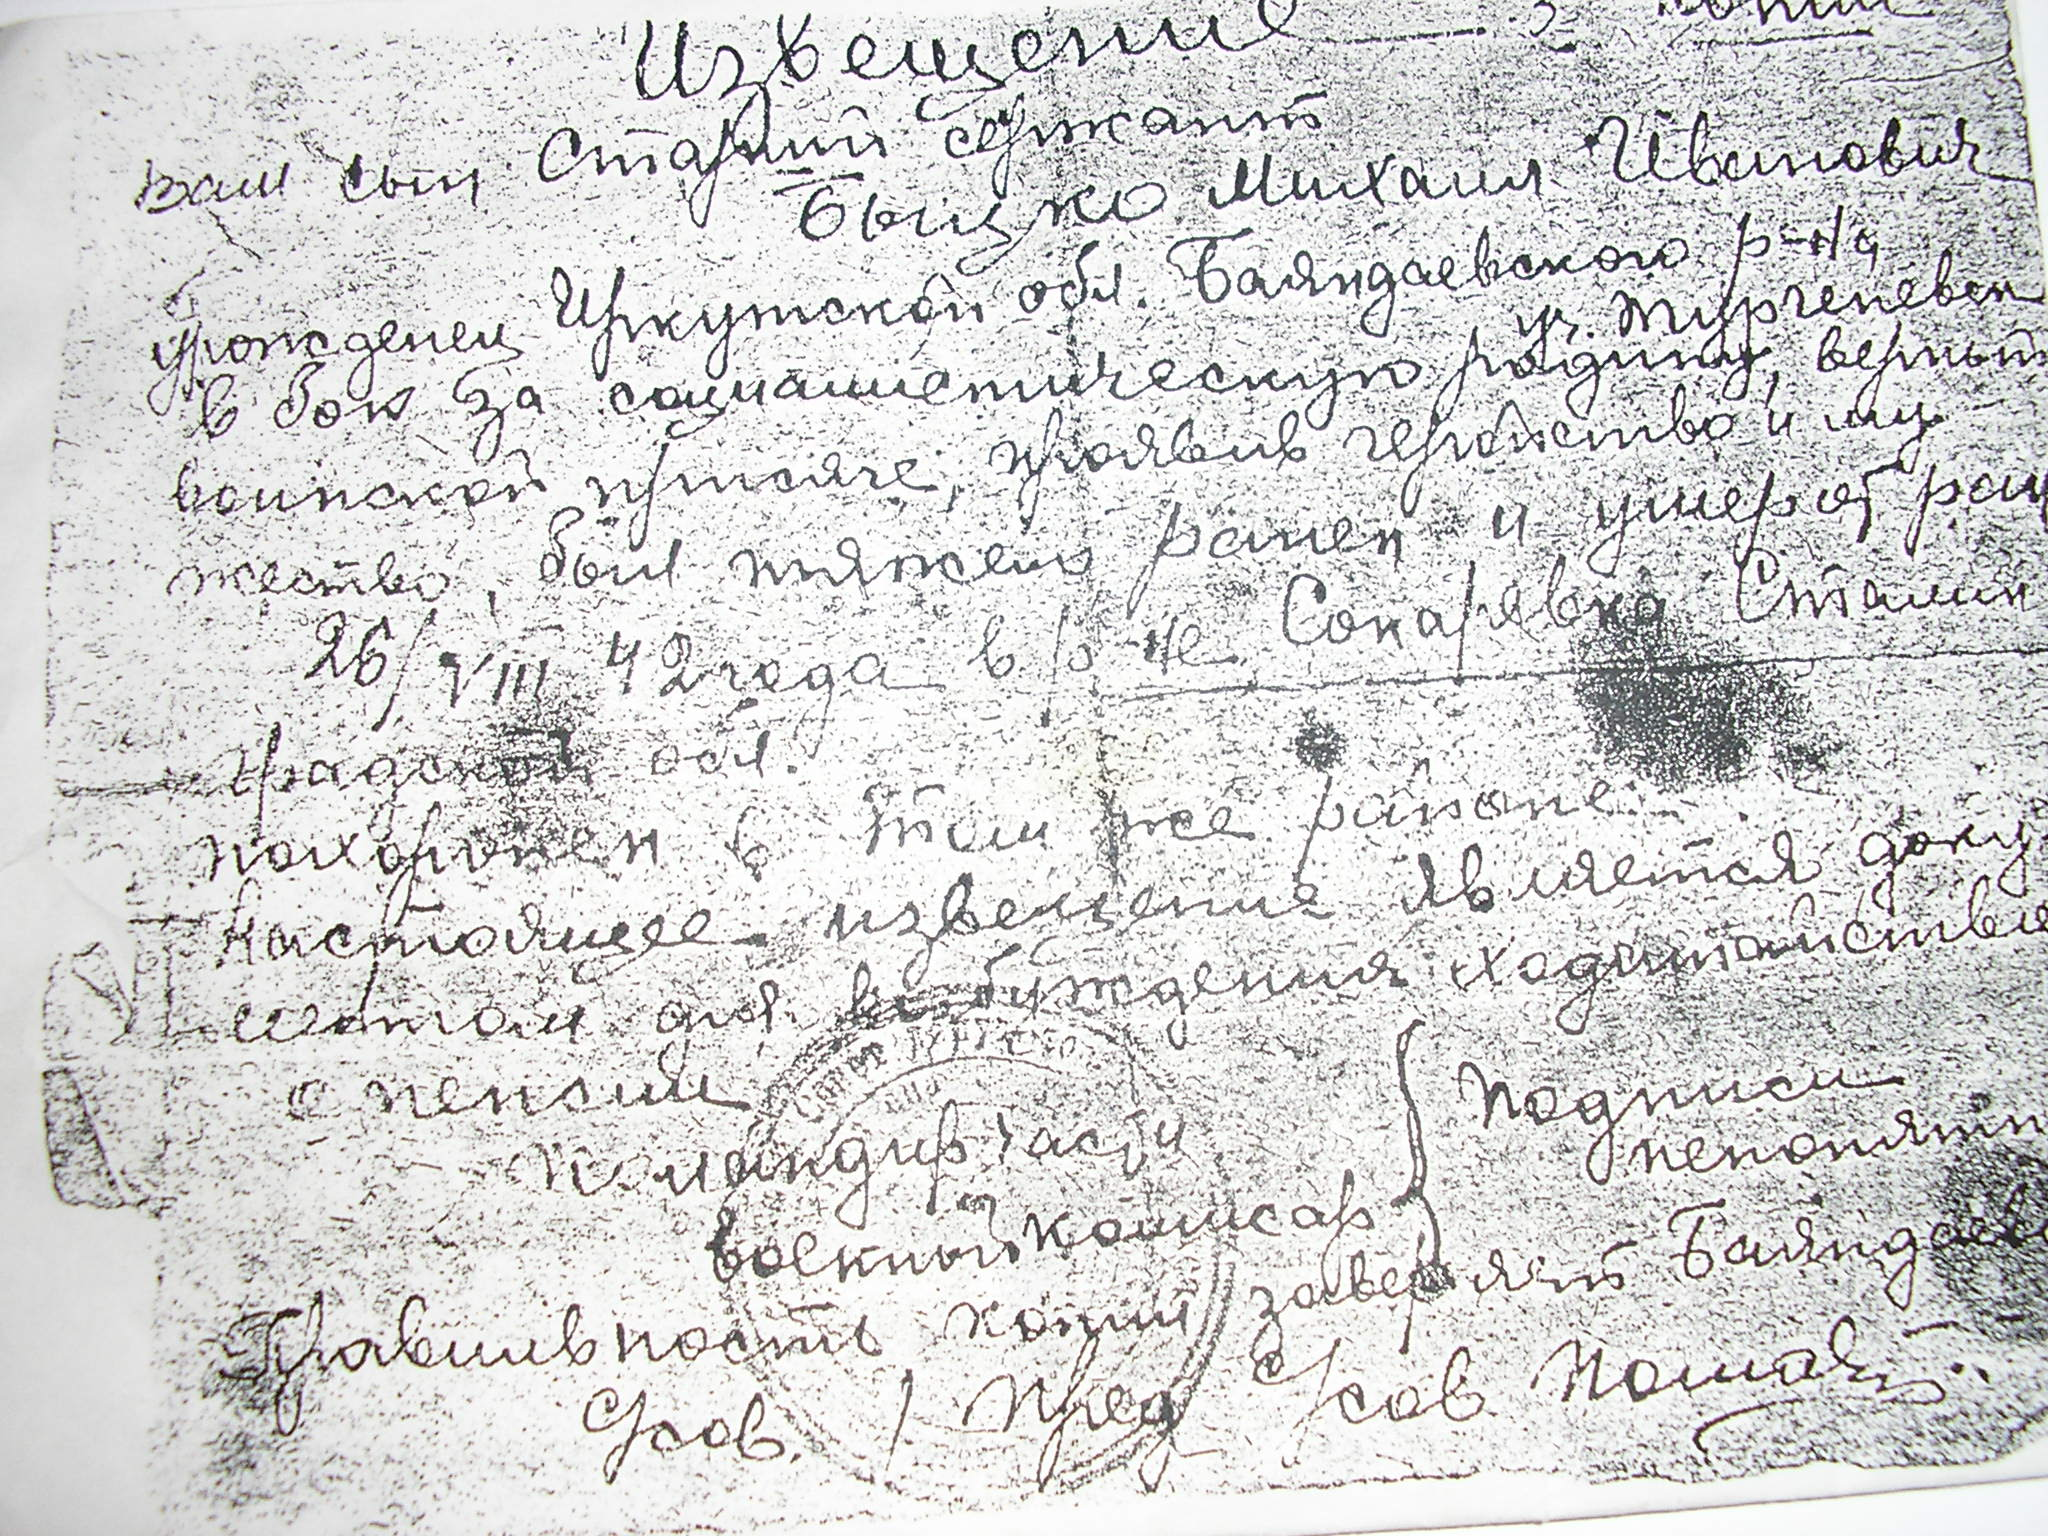 Извещение копии
Ваш сын Старший сержант
Быцко Михаил Иванович
урожденец Иркутской обл. Баяндаевского р-на
уч. Тургеневск
в бою за социалистическую родину, верный
воинской присяге, проявив геройство и му
жество, был тяжело ранен и умер от ран
26/VIII 42 года в р-не Сокаревка Сталин
градской обл.
похоронен в том же районе.
Настоящее извещение является доку
ментом для возбуждения ходатайства
о пенсии
Командир части
военный комисар
} Подписи
непонятн
Правильность копии заверяет Баяндаевс